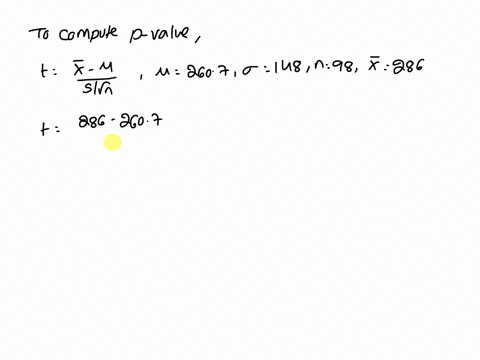 To compute p-value,
t = x̄ - μ / s/√n , μ = 260.7, σ = 148, n = 98, x̄ = 286
t = 286 - 260.7